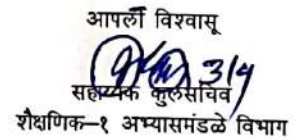 आपला विश्वासू
3/4
सहाय्यक कुलसचिव
शैक्षणिक-१ अभ्यासमंडळे विभाग